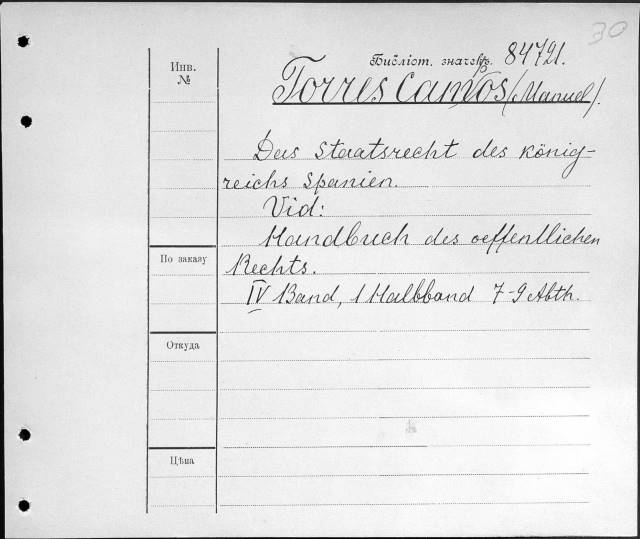 30
Библіот. значекъ. 84721.
Инв.
№
Torres Campos (Manuel).
Das Staatsrecht des König-
reichs Spanien.
Vid:
Handbuch des oeffentlichen
Rechts.
IV Band, 1 Halbband 7-9 Abth.
По заказу
Откуда
Цѣна